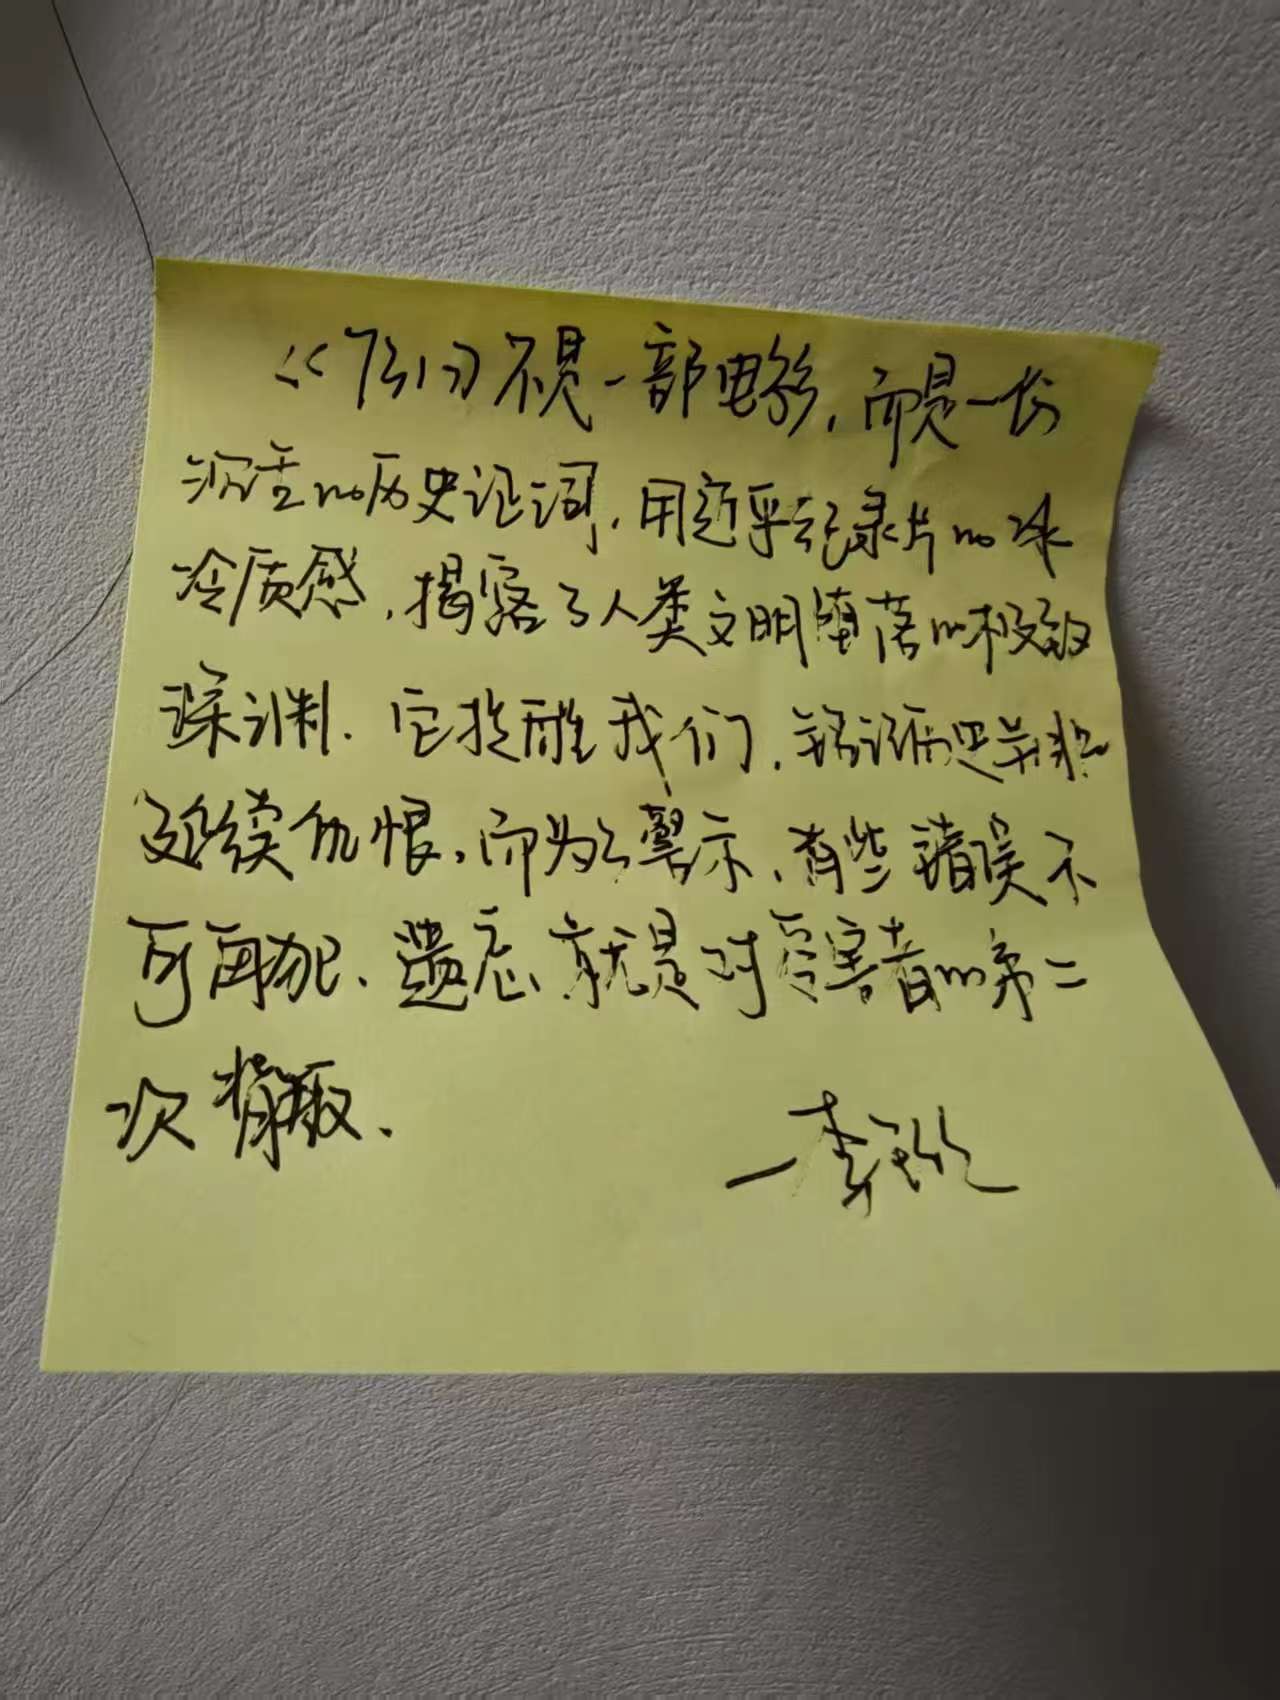 《731》不是一部电影,而是一份
沉重的历史证词,用近乎纪录片的冰
冷质感,揭露了人类文明堕落的极致
深渊.它提醒我们,铭记历史并非
延续仇恨,而为了警示,有些错误不
可再犯、遗忘就是对受害者的第二
次背叛.
—李